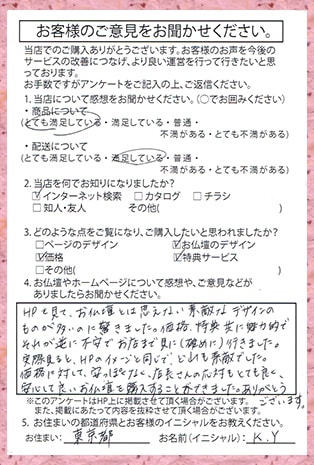 お客様のご意見をお聞かせください。
当店でのご購入ありがとうございます。お客様のお声を今後の
サービスの改善につなげ、より良い運営を行って行きたいと思
っております。
お手数ですがアンケートをご記入の上、ご返信ください。
1. 当店について感想をお聞かせください。(○でお囲みください)
・商品について
(とても満足している・満足している・普通・
不満がある・とても不満がある)
・配送について
(とても満足している・満足している・普通・
不満がある・とても不満がある)
2. 当店を何でお知りになりましたか?
☑インターネット検索 □カタログ □チラシ
□知人・友人 その他( )
3. どのような点をご覧になり、ご購入したいと思われましたか?
□ページのデザイン ☑お仏壇のデザイン
☑価格 ☑特典サービス
□その他( )
4. お仏壇やホームページについて感想や、ご意見などが
ありましたらお聞かせください。
HPを見て、お仏壇とは思えない素敵なデザインの
ものが多いのに驚きました。価格、特典共に魅力的で
それが逆に不安でお店まで見に(確めに)行きました。
実際見ると、HPのイメージと同じで、とても素敵でした。
価格に対して、安っぽくなく、店長さんの対応もとても良く、
安心して良いお仏壇を購入することができました。ありがとう
ございます。
※このアンケートはHP上に掲載させて頂く場合がございます。
また、掲載にあたって内容を抜粋させて頂く場合がございます。
5. お住まいの都道府県とお客様のイニシャルをお教えください。
お住まい: 東京都 お名前(イニシャル): K.Y